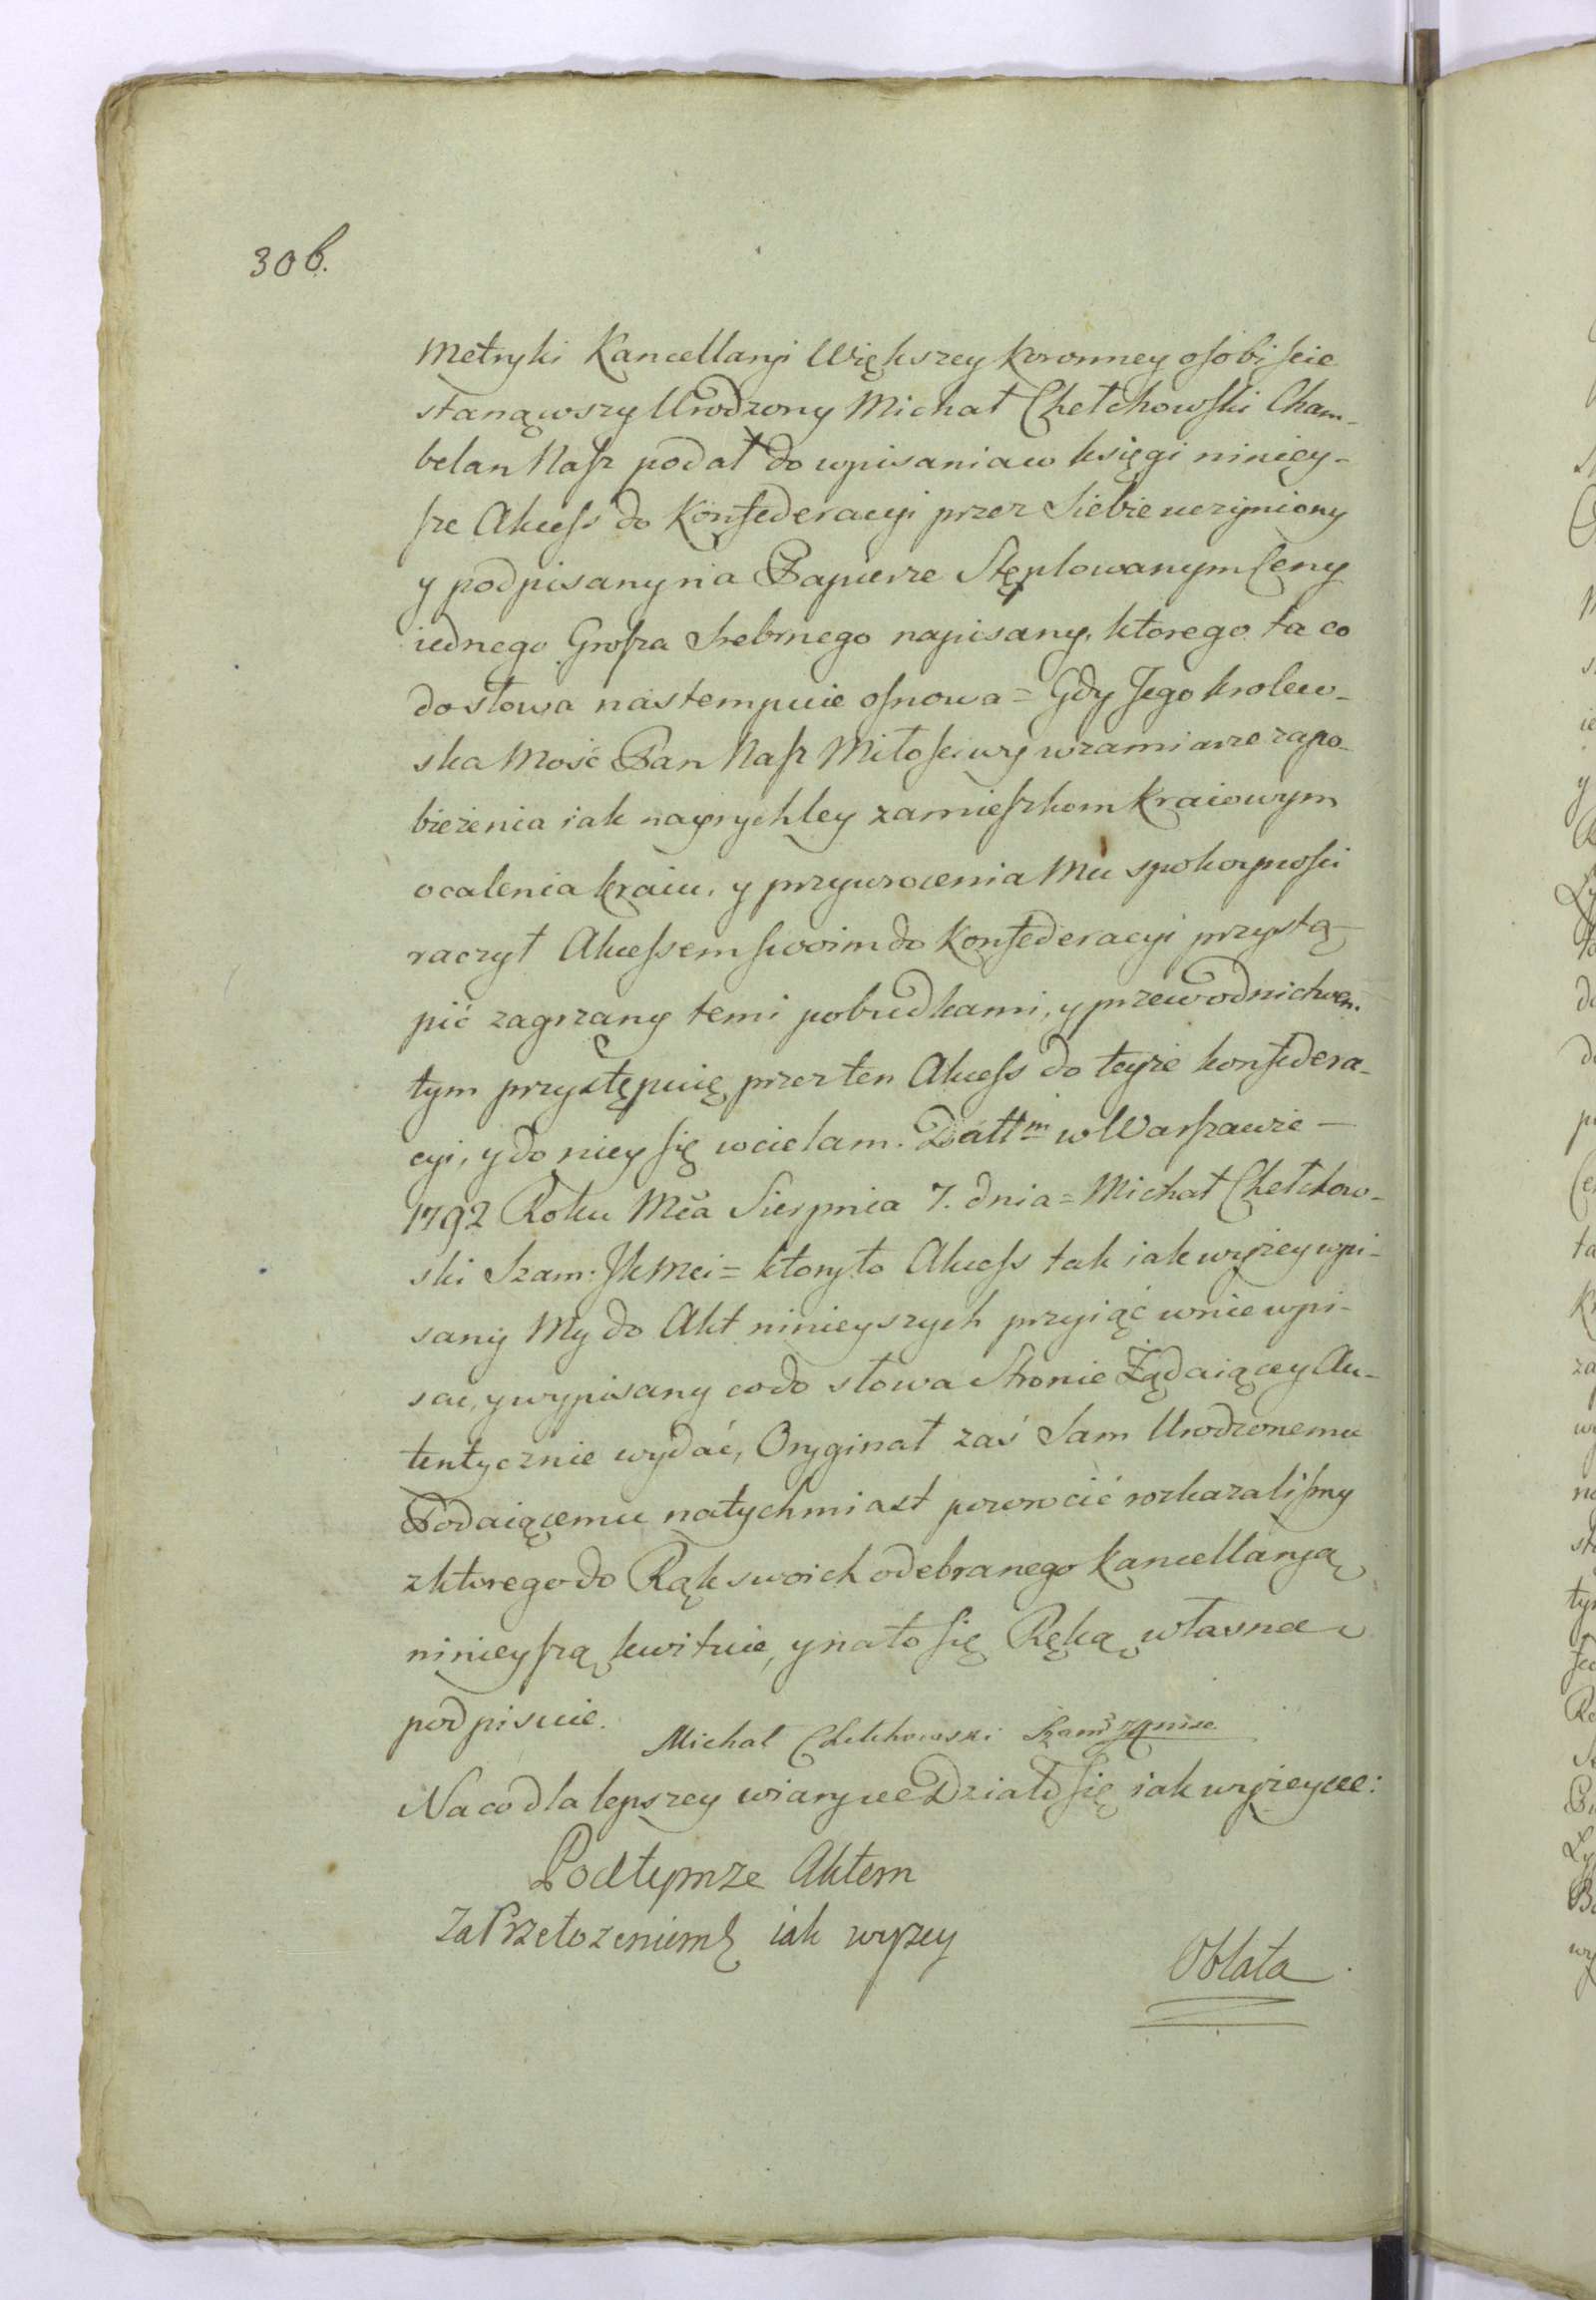 306.
Metryki Kancellaryi Większey Koronney osobiscie
stanąwszy Urodzony Michał Chełchowski Cham-
belan Nasz podał do wpisania w księgi niniey-
sze Akcess do Konfederacyi przez Siebie uczyniony
y podpisany na Papierze Stęplowanym Ceny
iednego Grosza Srebrnego napisany, ktorego ta co
do słowa nastempuie osnowa = Gdy Jego krolew-
ska Mość Pan Nasz Miłościwy w zamiarze zapo-
bieżenia iak nayrychley zamieszkom kraiowym
ocalenia kraiu, y przywrocenia Mu spokoyności
raczył Akcessem swoim do Konfederacyi przystą-
pić zagrzany temi pobudkami, y przewodnictwem
tym przystępuię przez ten Akcess do teyże konfedera-
cyi, y do niey się wcielam. Datt<sup>m</sup> w Warszawie —
1792 Roku Mća Sierpnia 7. dnia = Michał Chełchow-
ski Szam: JKMci = ktory to Akcess tak iak wyżey wpi-
sany My do Akt ninieyszych przyiąć w nie wpi-
sać, y wypisany co do słowa Stronie Żądaiącey Au-
tentycznie wydać, Oryginał zaś Sam Urodzonemu
Podaiącemu natychmiast powrocić rozkazalismy
z ktorego do Rąk swoich odebranego Kancellaryą
ninieyszą kwituie, y na to się Ręką własną
podpisuie.
Michał Chełchowski Szam
Na co dla lepszey wiary &c Działo się iak wyżey &c:
Pod tymże Aktem
Za Przełożeniem &c iak wyżey
Oblata